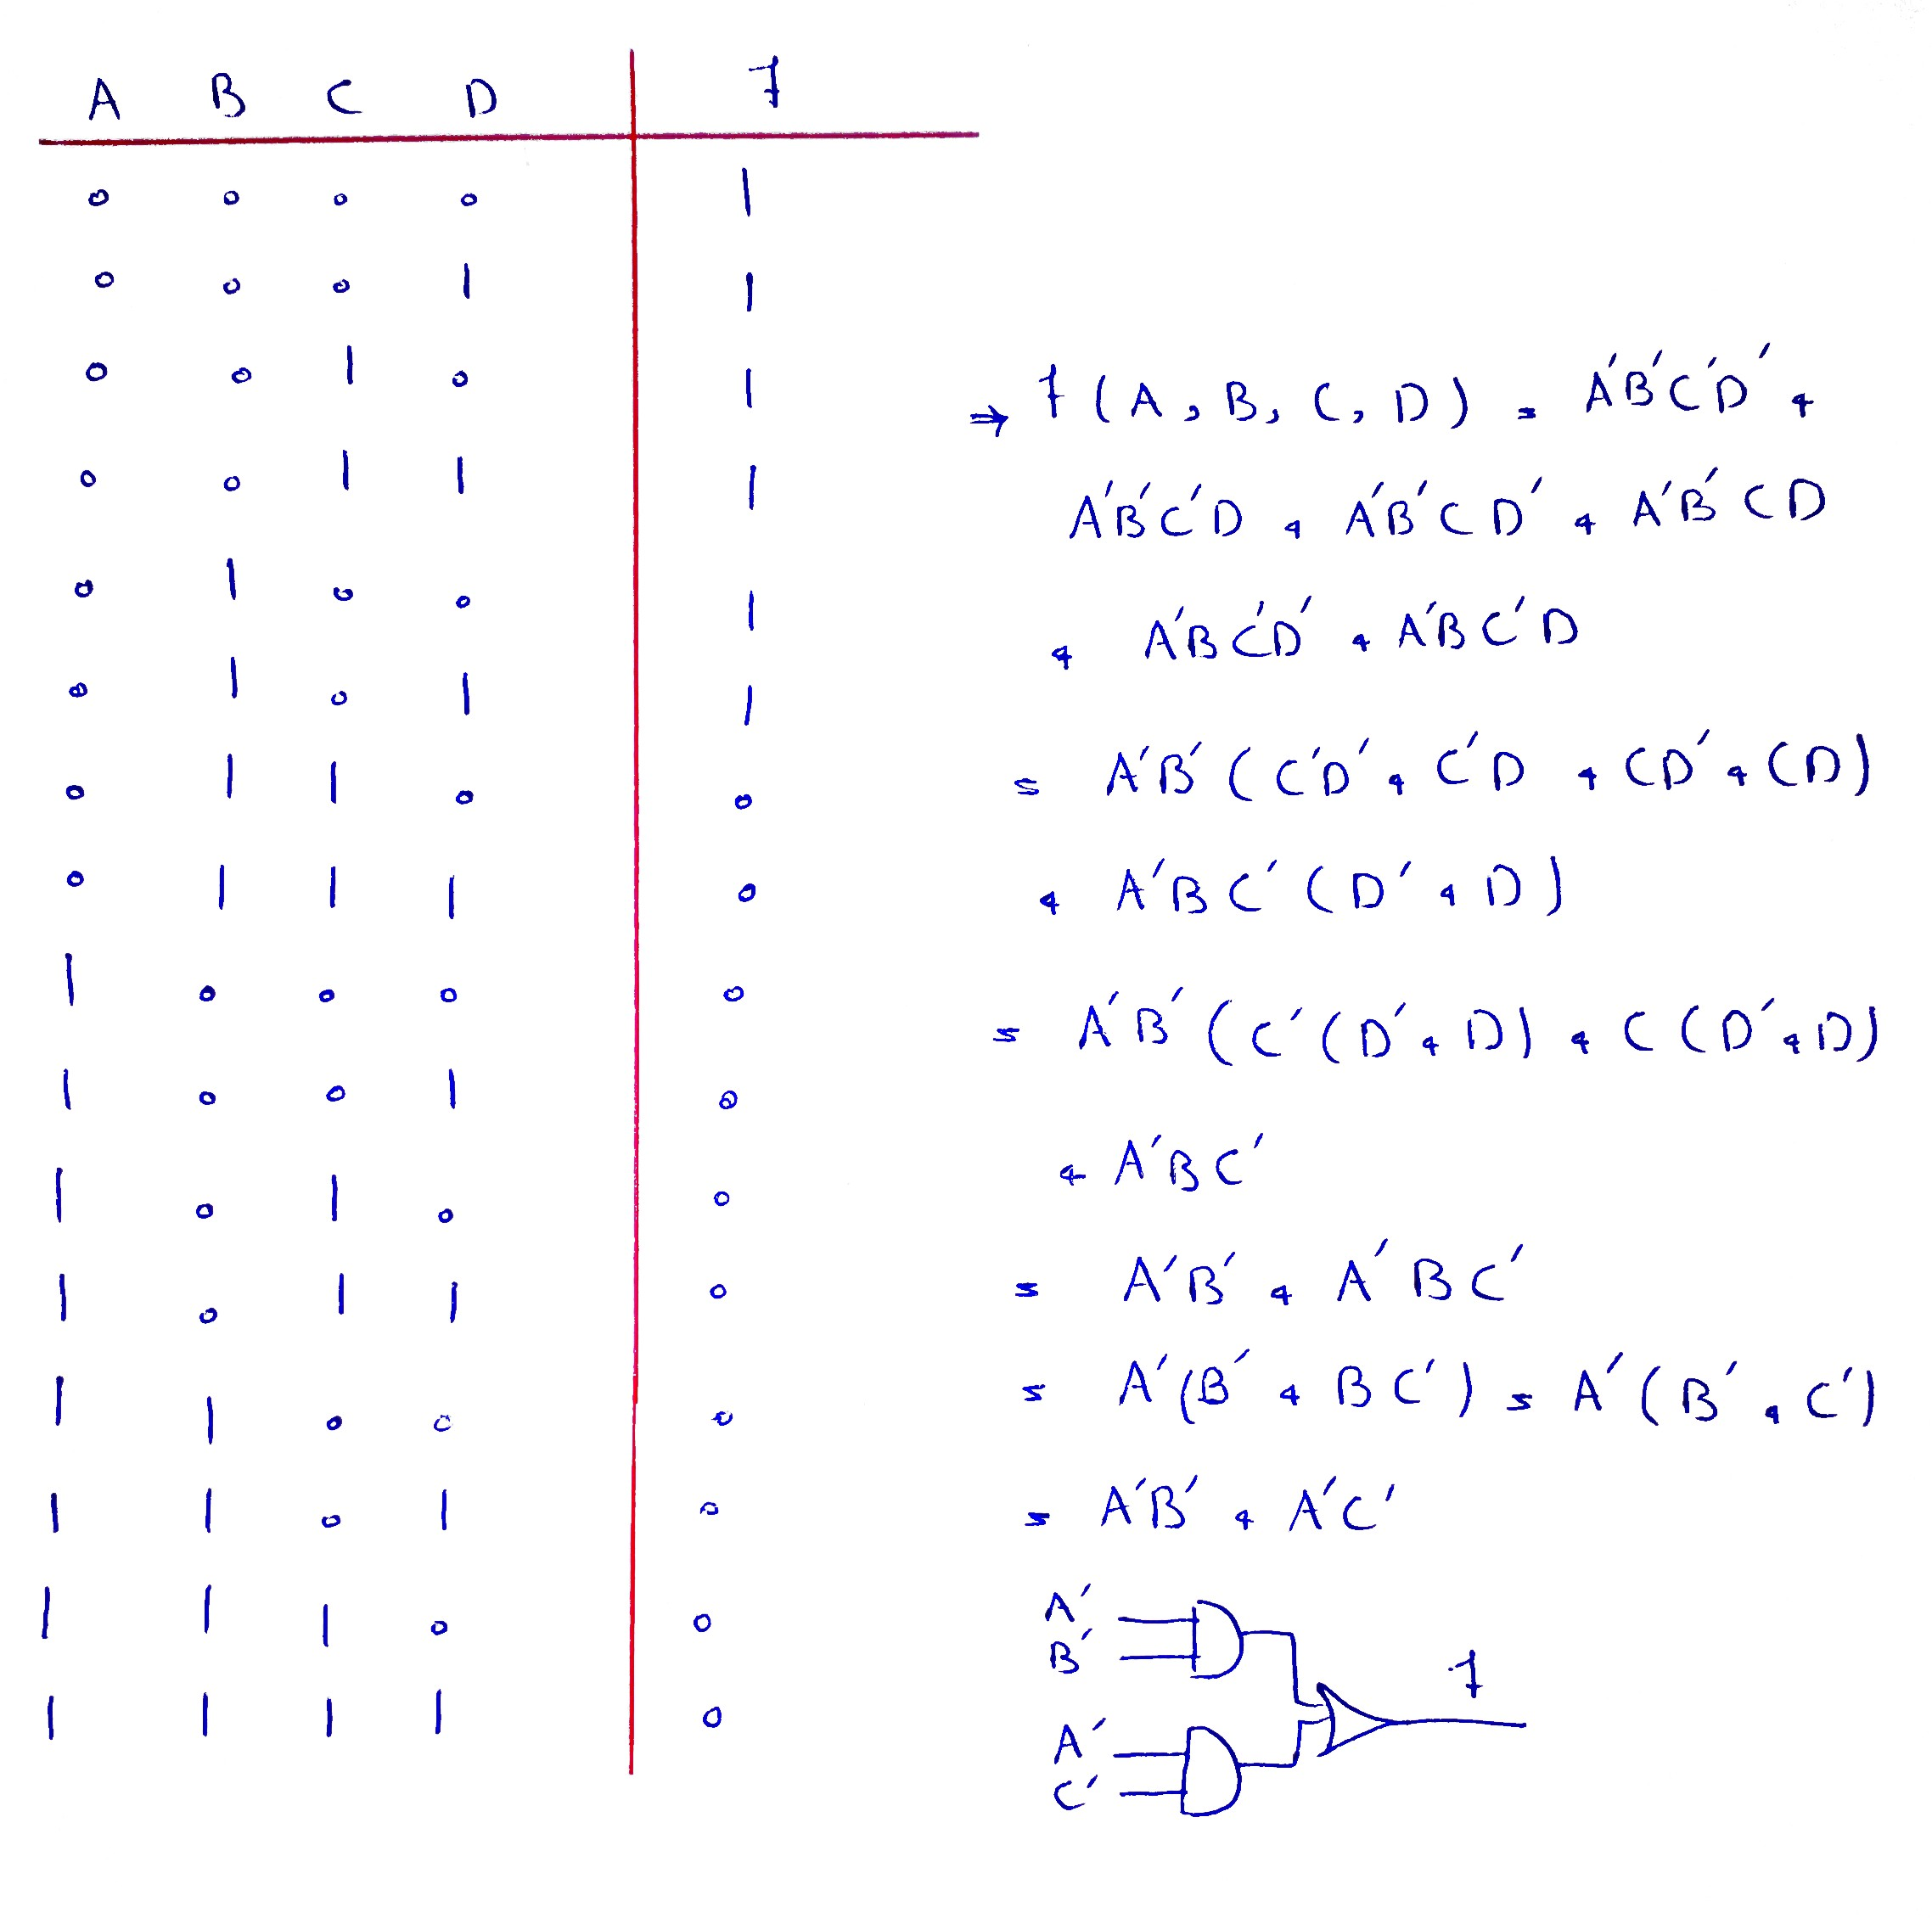 A B C D f
0 0 0 0 1
0 0 0 1 1
0 0 1 0 1
0 0 1 1 1
0 1 0 0 1
0 1 0 1 1
0 1 1 0 0
0 1 1 1 0
1 0 0 0 0
1 0 0 1 0
1 0 1 0 0
1 0 1 1 0
1 1 0 0 0
1 1 0 1 0
1 1 1 0 0
1 1 1 1 0
⇒ f(A, B, C, D) = A'B'C'D' +
A'B'C'D + A'B'CD' + A'B'CD
+ A'BC'D' + A'BC'D
= A'B'(C'D' + C'D + CD' + CD)
+ A'BC'(D' + D)
= A'B'(C'(D' + D) + C(D' + D)
+ A'BC'
= A'B' + A'BC'
= A'(B' + BC') = A'(B' + C')
= A'B' + A'C'
A'
B'
f
A'
C'